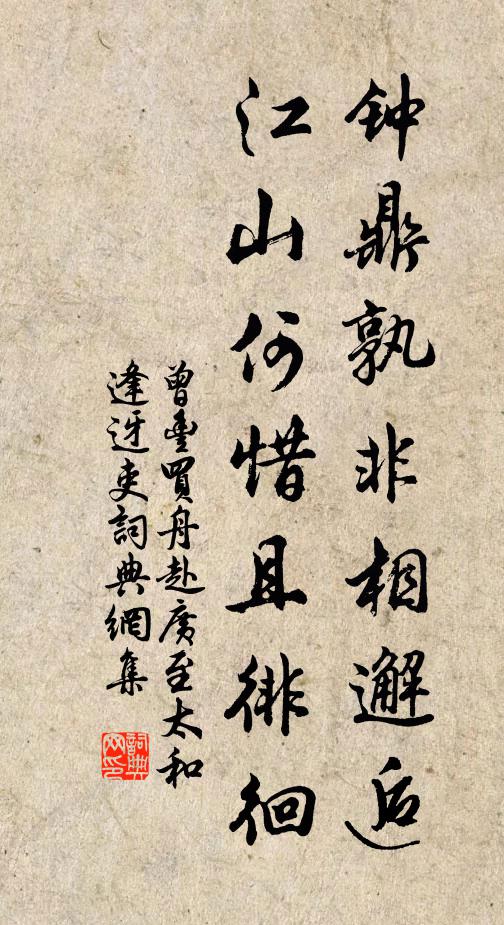 钟鼎孰非相邂逅
江山何惜且徘徊
曾豐買舟赴廣至太和
逢迓吏詞典網集
詞典网印